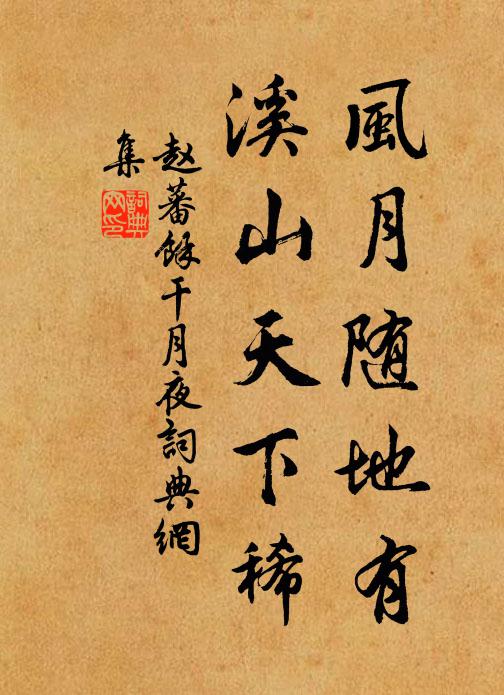 風月随地有
溪山天下稀
赵蕃餘干月夜詞典網
集
詞典
网印